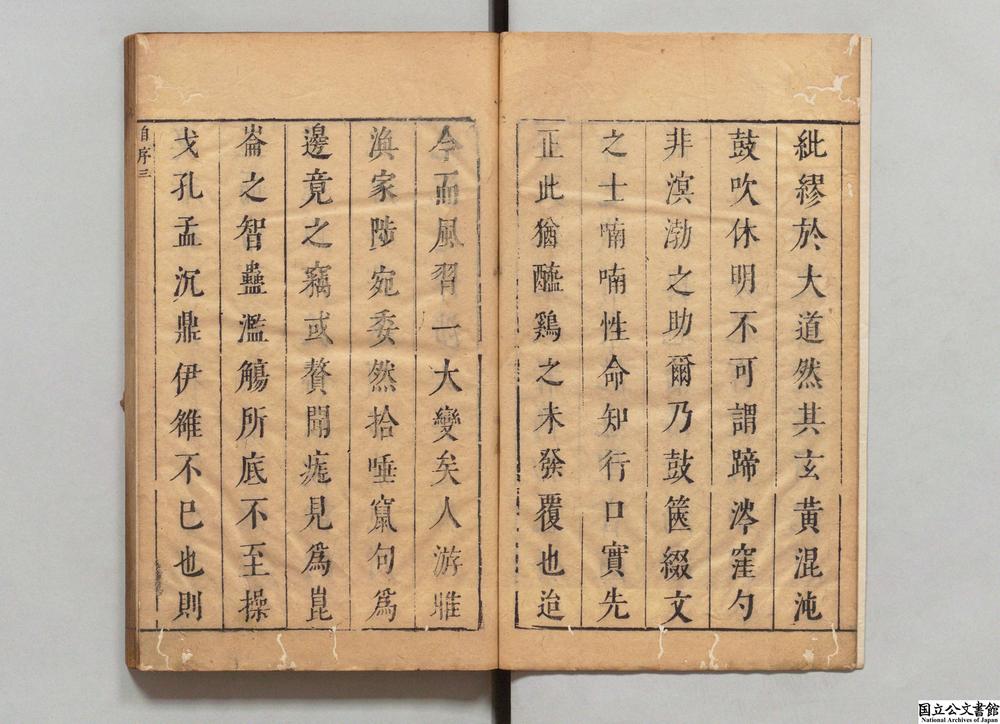 紕繆於大道然其玄黃混沌
鼓吹休明不可謂蹄涔窪勺
非溟渤之助爾乃鼓篋綴文
之士喃喃性命知行口實先
正此猶醯鷄之未發覆也迨
今而風習一大變矣人游雎
渙家陟宛委然拾唾竄句爲
邊竟之竊或贅聞疣見爲崑
崙之智蠱濫觴所底不至操
戈孔孟沉鼎伊雒不已也則
自序三
国立公文書館
National Archives of Japan